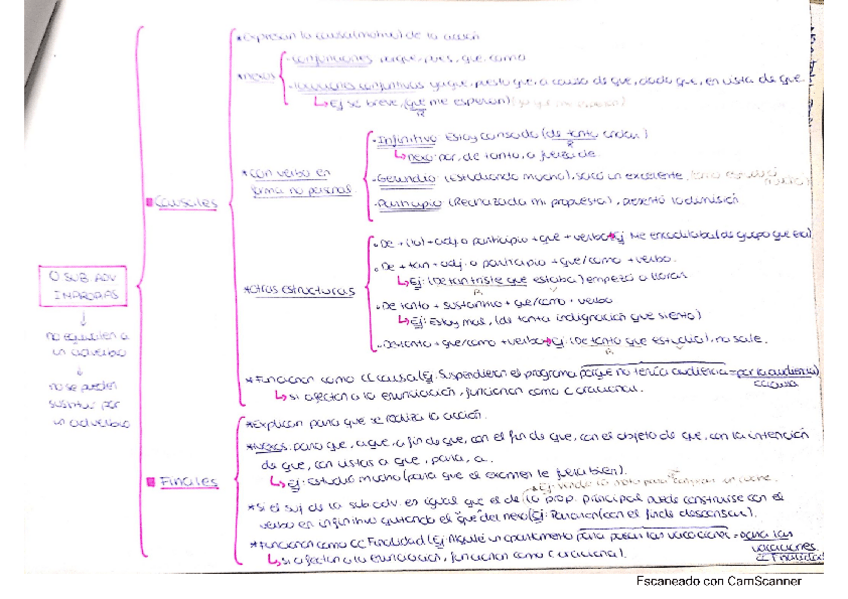 *Expresan la causa (motivo) de la acción
*nexos
- conjunciones porque, pues, que, como
- locuciones conjuntivas ya que, puesto que, a causa de que, dado que, en vista de que
Ej se breve, que me esperan)
*con verbo en
forma no personal
- Infinitivo Estoy cansado (de tanto andar.)
nexo: por, de tanto, a fuerza de
- Gerundio (Estudiando mucho), sacó un excelente.
- Participio (Rechazada mi propuesta), presentó la dimisión
■ Causales
*otras estructuras
• De + (lo) + adj o participio + que + verbo → Ej
• De + tan + adj. o participio + que/como + verbo.
Ej: (De tan triste que estaba) empezó a llorar
• De tanto + sustantivo + que/como + verbo
Ej: Estoy mal, (de tanta indignación que siento)
• De tanto + que/como + verbo → Ej: (De tanto que estudia), no sale.
*Funcionan como CC causa (Ej. Suspendieron el programa porque no tenía audiencia = por la audiencia)
CCcausa
si afectan a la enunciación, funcionan como C oracional.
O SUB ADV
IMPROPIAS
no equivalen a
un adverbio
no se pueden
sustituir por
un adverbio
■ Finales
*Explican para que se realiza la acción.
*Nexos. para que, a que, a fin de que, con el fin de que, con el objeto de que, con la intención
de que, con vistas a que, para, a.
Ej: Estudió mucho (para que el examen le fuera bien).
*Si el suj de la sub adv. es igual que el de la prop. principal puede construirse con el
verbo en infinitivo quitando el "que" del nexo (Ej: Pararon (con el fin de descansar).
*Funcionan como CC Finalidad (Ej: Alquilé un apartamento para pasar las vacaciones = para las
vacaciones.
CC Finalidad
si afectan a la enunciación, funcionan como C oracional).
Escaneado con CamScanner